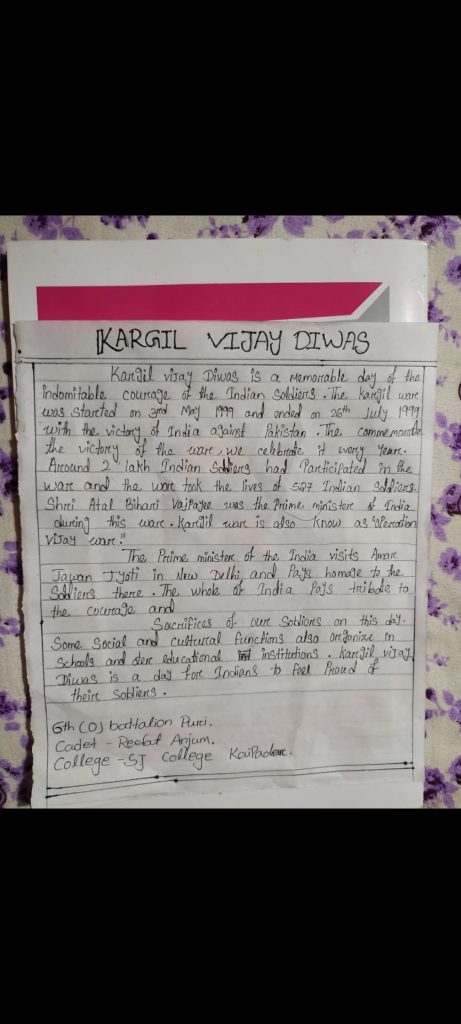 KARGIL VIJAY DIWAS
Kargil vijay Diwas is a memorable day of the
indomitable courage of the Indian Soldiers. The kargil ware
was started on 3rd May 1999 and ended on 26th July 1999
with the victory of India against Pakistan. The commemorate
the victory of the ware, we celebrate it every year.
Around 2 lakh Indian Soldiers had Participated in the
ware and the ware took the lives of 527 Indian Soldiers.
Shri Atal Bihari Vajpayee was the Prime minister of India
during this ware. Kargil ware is also know as "Operation
vijay ware."
The Prime minister of the India visits Amar
Jawan Jyoti in New Delhi and Pays homage to the
Soldiers there. The whole of India Pays tribute to
the courage and
Sacrifices of our Soldiors on this day.
Some Social and cultural functions also organize in
Schools and educational institutions. Kargil vijay
Diwas is a day for Indians to feel Proud of
their Soldiers.
6th (O) battalion Puri.
Cadet - Reafat Anjum.
College - SJ College